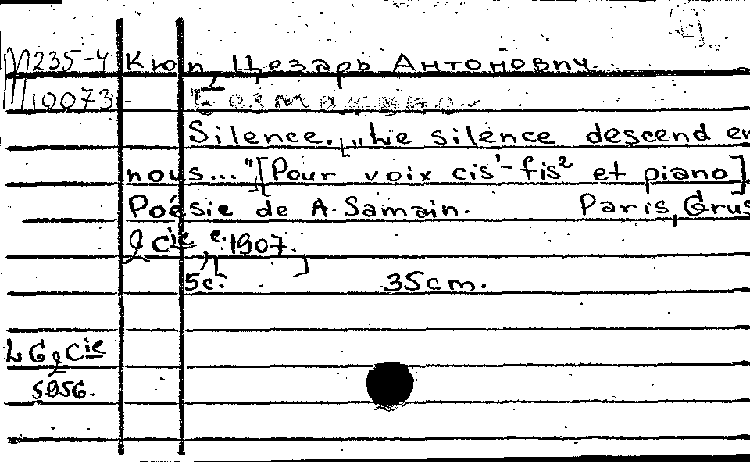 М235-4 Кюи, Цезарь Антонович.
10073 Безмолвно.
Silence. „Le silence descend en
nous..." [Pour voix cis¹-fis² et piano]
Poésie de A. Samain. Paris, Grus
& Cie, c. 1907.
5c. 35cm.
LG & Cie
5056.